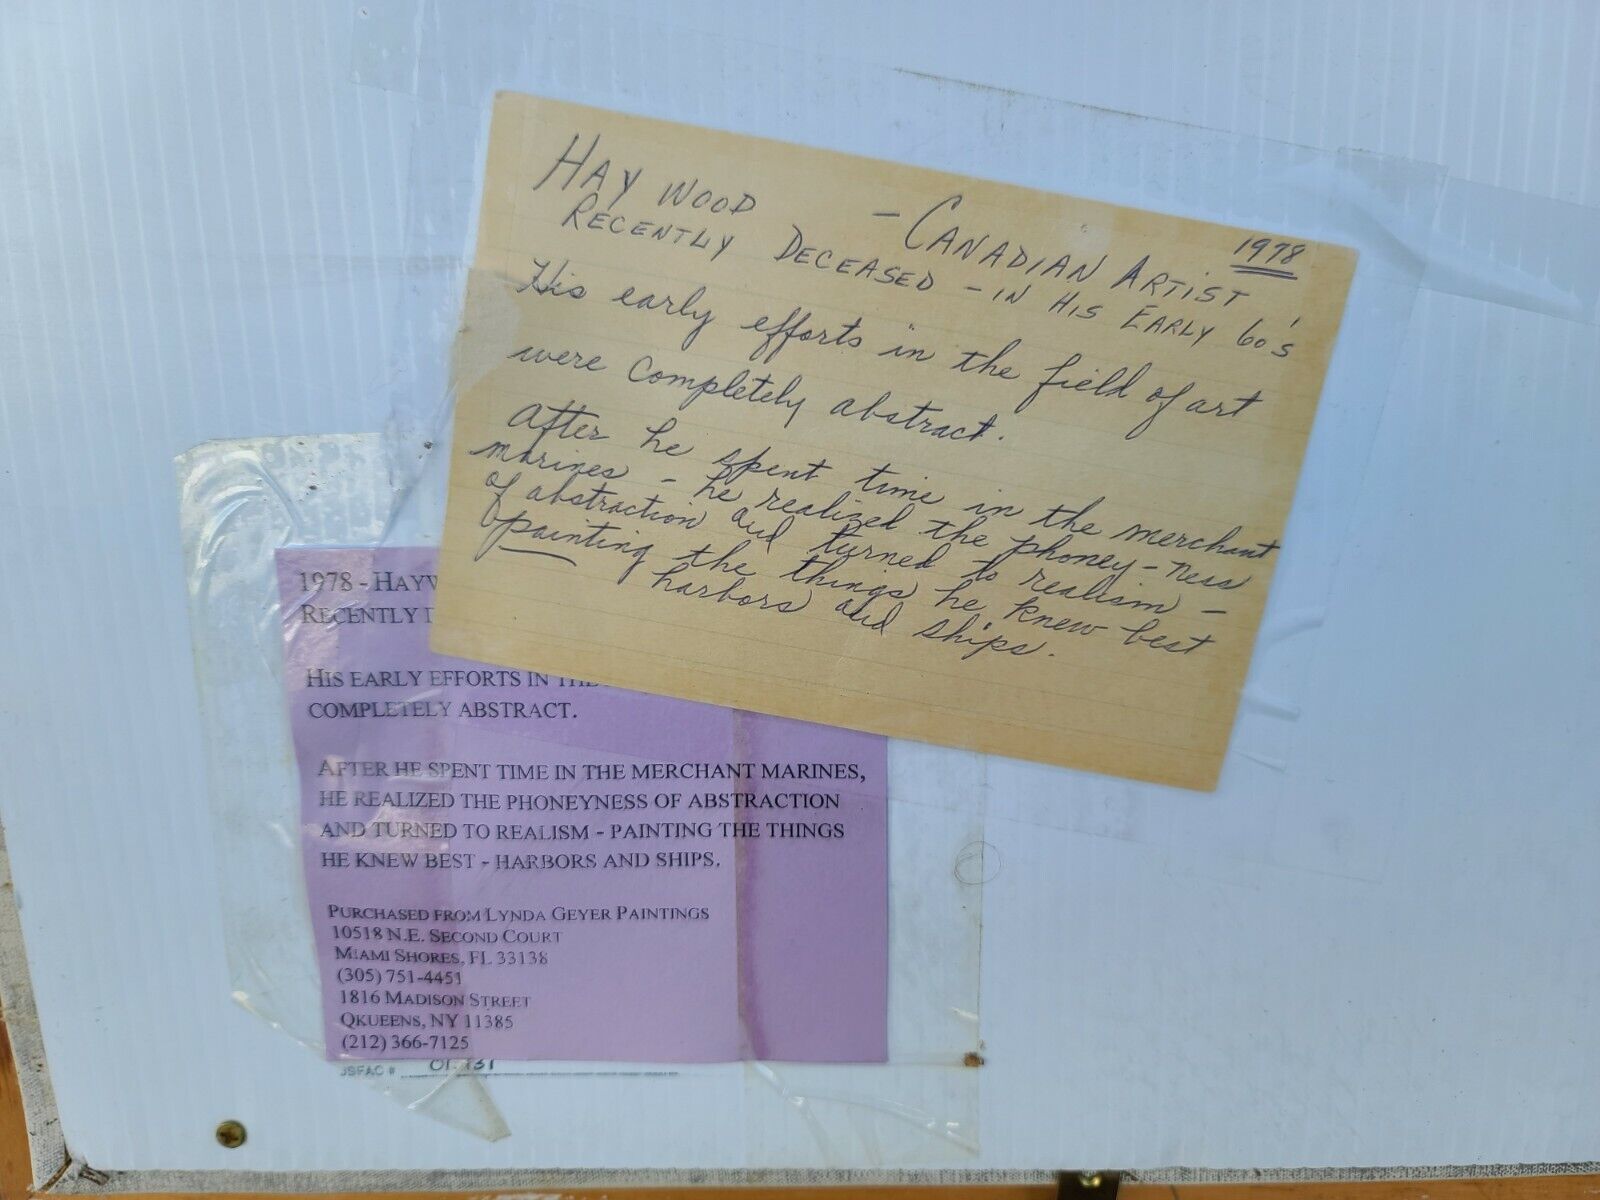 HAY WOOD - CANADIAN ARTIST 1978
RECENTLY DECEASED - IN HIS EARLY 60's
His early efforts in the field of art
were completely abstract.
After he spent time in the merchant
marines - he realized the phoney-ness
of abstraction and turned to realism -
painting the things he knew best
harbors and ships.
1978 - HAYW
RECENTLY D
HIS EARLY EFFORTS IN THE
COMPLETELY ABSTRACT.
AFTER HE SPENT TIME IN THE MERCHANT MARINES,
HE REALIZED THE PHONEYNESS OF ABSTRACTION
AND TURNED TO REALISM - PAINTING THE THINGS
HE KNEW BEST - HARBORS AND SHIPS.
PURCHASED FROM LYNDA GEYER PAINTINGS
10518 N.E. SECOND COURT
MIAMI SHORES, FL 33138
(305) 751-4451
1816 MADISON STREET
QKUEENS, NY 11385
(212) 366-7125